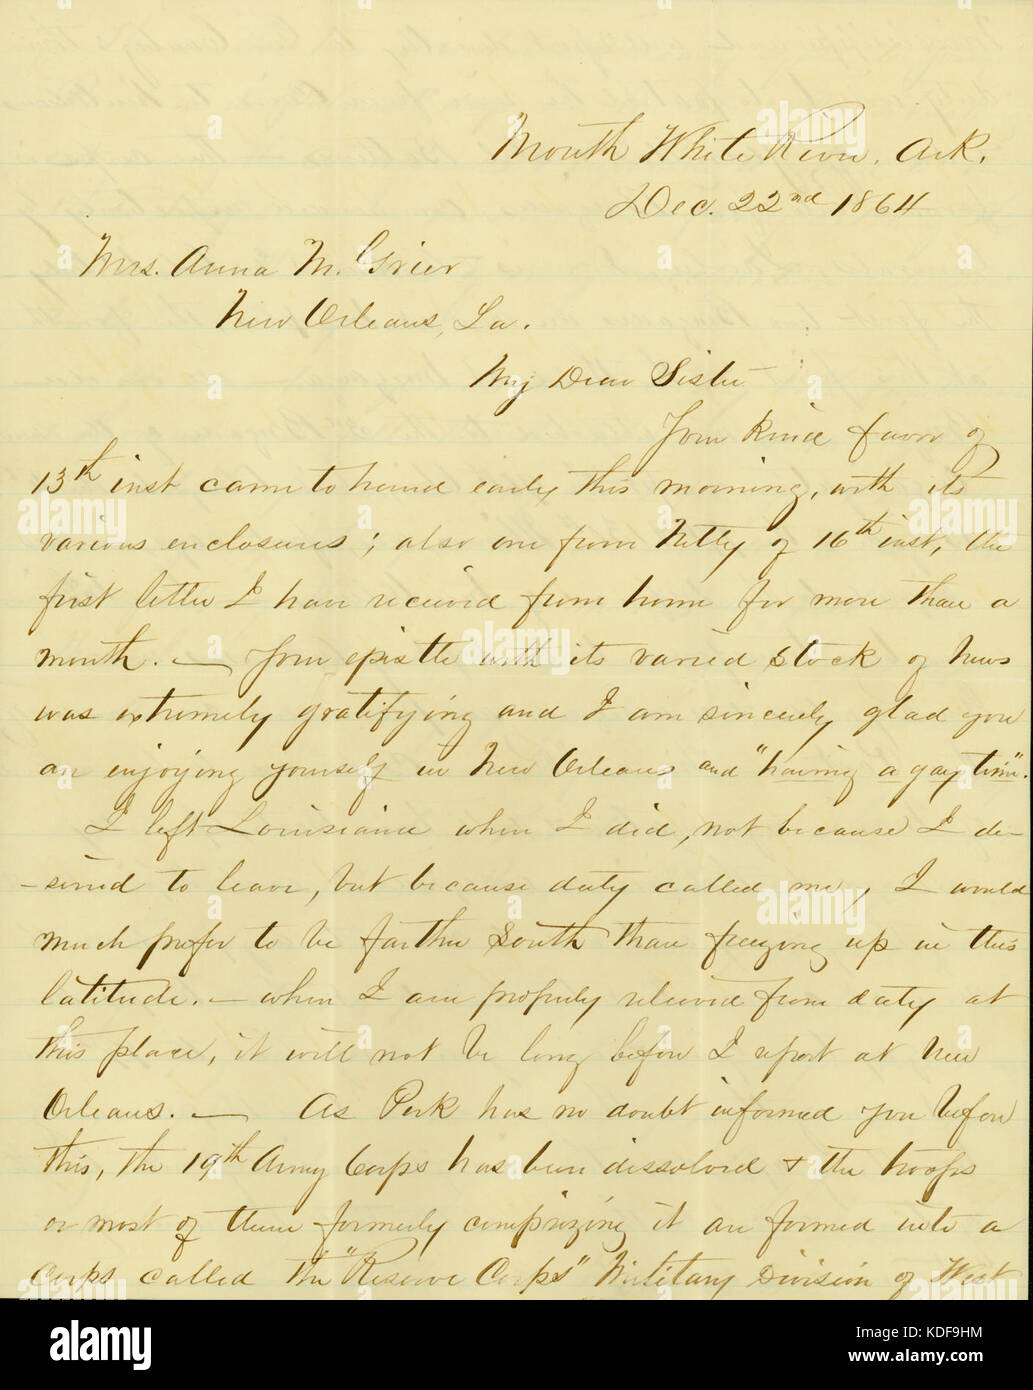 Mouth White River, Ark.
Dec. 22nd 1864
Mrs. Anna M. Grier
New Orleans, La.
My Dear Sister
Your kind favor of
13th inst came to hand early this morning, with its
various enclosures; also one from Netty of 16th inst, the
first letter I have received from home for more than a
month. — Your epistle with its varied stock of news
was extremely gratifying and I am sincerely glad you
are enjoying yourself in New Orleans and "having a gay time".
I left Louisiana when I did, not because I de-
-sired to leave, but because duty called me, I would
much prefer to be farther South than freezing up in this
latitude. — when I am properly relieved from duty at
this place, it will not be long before I report at New
Orleans. — As Perk has no doubt informed you before
this, the 19th Army Corps has been dissolved & the troops
or most of them formerly comprizing it are formed into a
Corps called the "Reserve Corps" Military Division of West
alamy
a
alamy
Image ID: KDF9HM
www.alamy.com